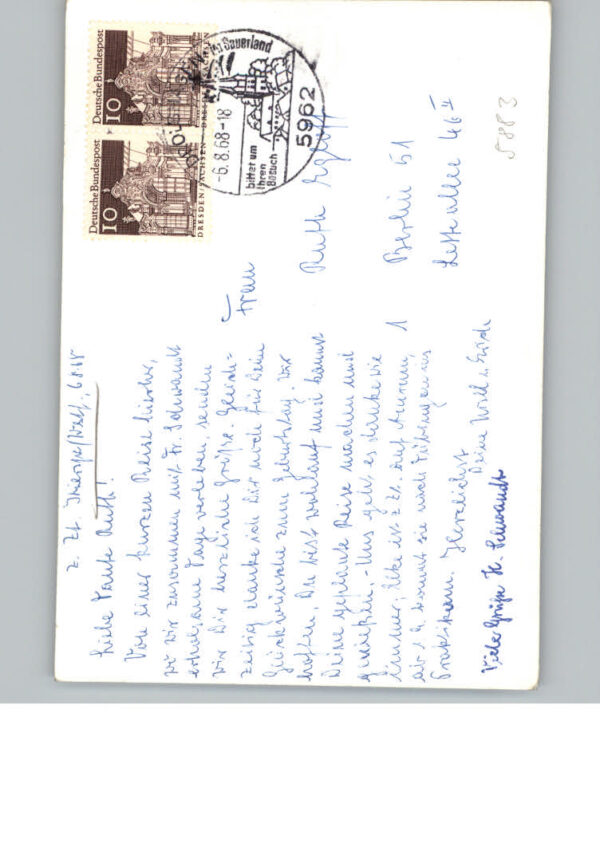 z. Zt. Thieringhs./Westf., 6.8.68
Liebe Tante Ruth!
Von einer kurzen Reise hierher,
wo wir zusammen mit Fr. Schwandt
erholsame Tage verleben, senden
wir Dir herzliche Grüße. Gleich-
zeitig danke ich Dir noch für Deine
Glückwünsche zum Geburtstag. Wir
hoffen, Du bist wohlauf und kannst
Deine geplante Reise machen und
genießen. - Uns geht es danke wie
immer; Elke ist z. Zt. auf
ab kommt sie nach
Praktikum. Herzlichst
Deine
Viele Grüße H. Schwandt
Deutsche Bundespost
10
DRESDEN-SACHSEN
Deutsche Bundespost
10
DRESDEN
im Sauerland
-6.8.68-18
bittet um
Ihren
Besuch
5962
Frau
Ruth
1 Berlin 51
Letteallee 46 I
5883